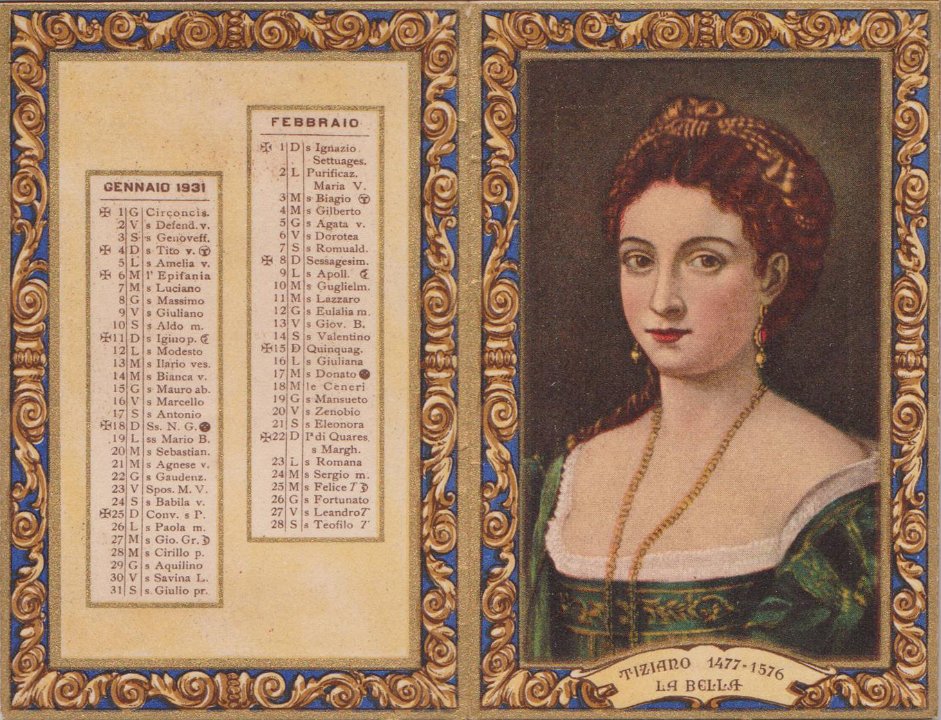 GENNAIO 1931
✠ 1 G Circoncis.
2 V s Defend. v.
3 S s Genoveff.
✠ 4 D s Tito v.
5 L s Amelia v.
✠ 6 M l' Epifania
7 M s Luciano
8 G s Massimo
9 V s Giuliano
10 S s Aldo m.
✠11 D s Igino p.
12 L s Modesto
13 M s Ilario ves.
14 M s Bianca v.
15 G s Mauro ab.
16 V s Marcello
17 S s Antonio
✠18 D Ss. N. G.
19 L ss Mario B.
20 M s Sebastian.
21 M s Agnese v.
22 G s Gaudenz.
23 V Spos. M. V.
24 S s Babila v.
✠25 D Conv. s P.
26 L s Paola m.
27 M s Gio. Gr.
28 M s Cirillo p.
29 G s Aquilino
30 V s Savina L.
31 S s. Giulio pr.
FEBBRAIO
✠ 1 D s Ignazio
Settuages.
2 L Purificaz.
Maria V.
3 M s Biagio
4 M s Gilberto
5 G s Agata v.
6 V s Dorotea
7 S s Romuald.
✠ 8 D Sessagesim.
9 L s Apoll.
10 M s Guglielm.
11 M s Lazzaro
12 G s Eulalia m.
13 V s Giov. B.
14 S s Valentino
✠15 D Quinquag.
16 L s Giuliana
17 M s Donato
18 M le Ceneri
19 G s Mansueto
20 V s Zenobio
21 S s Eleonora
✠22 D Iª di Quares.
s Margh.
23 L s Romana
24 M s Sergio m.
25 M s Felice T
26 G s Fortunato
27 V s Leandro T
28 S s Teofilo T
TIZIANO 1477-1576
LA BELLA